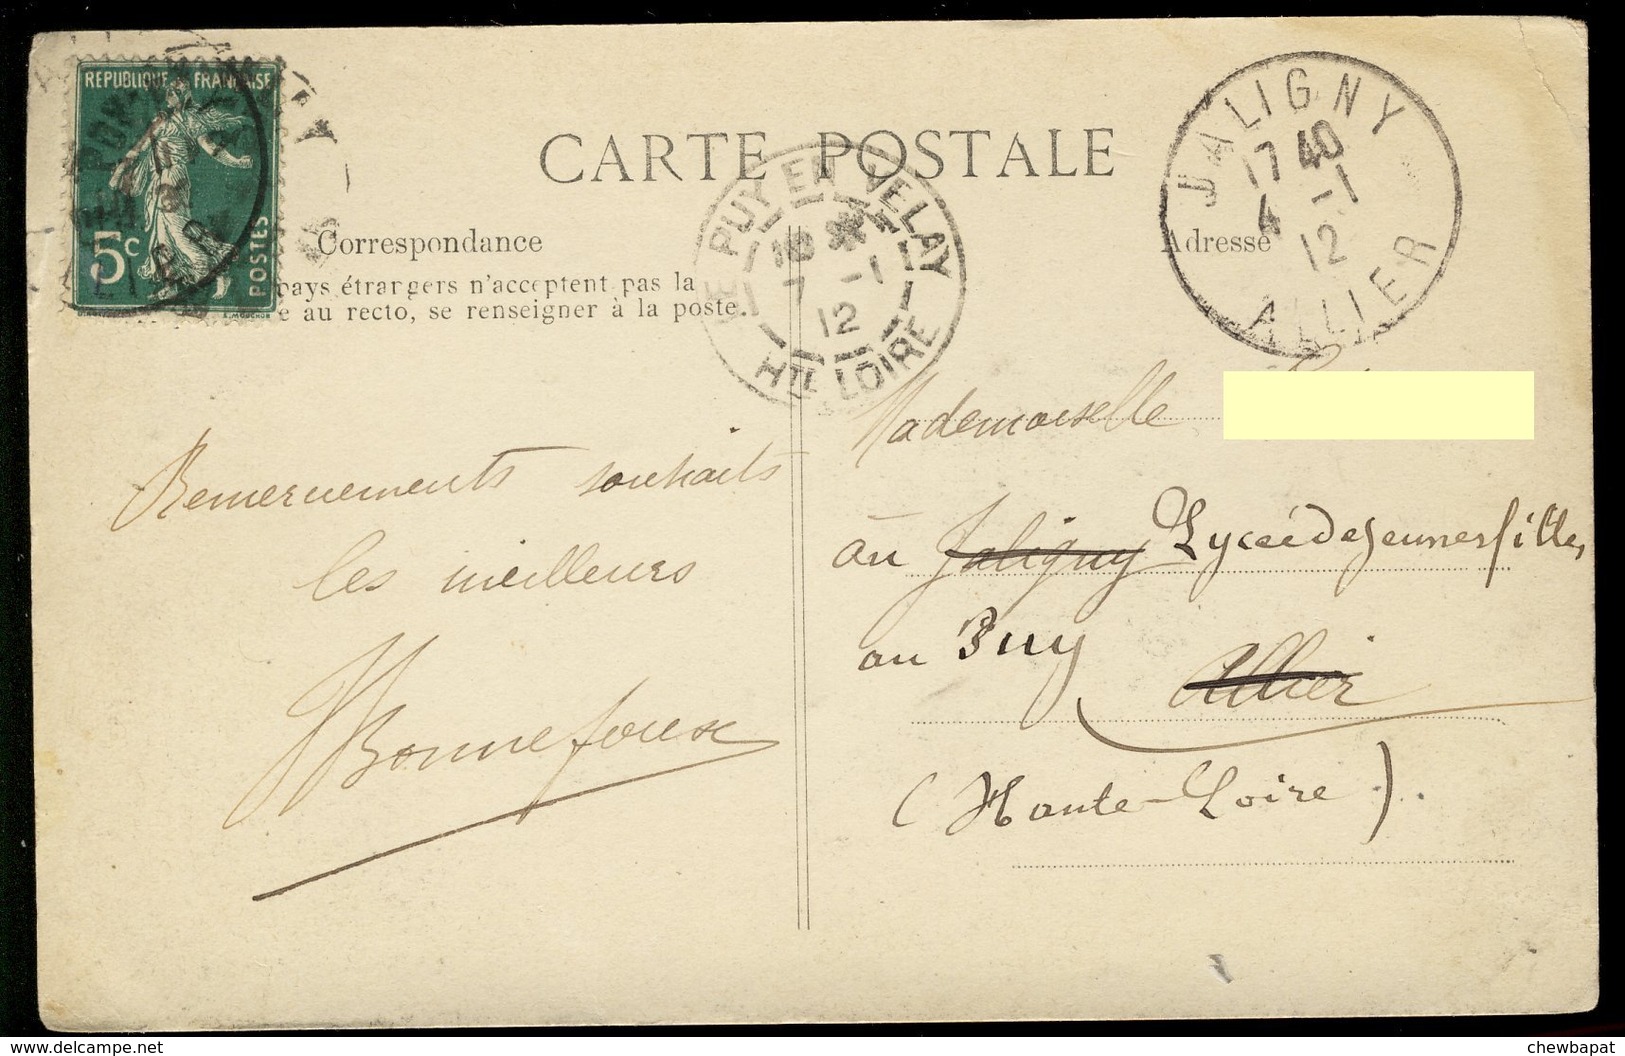 REPUBLIQUE FRANÇAISE
5c POSTES
CARTE POSTALE
Correspondance
Adresse
pays étrangers n'acceptent pas la
e au recto, se renseigner à la poste.
LE PUY EN VELAY
10 *
7 -1
12
HTE LOIRE
JALIGNY
17 40
4 -1
12
ALLIER
Remerciements souhaits
les meilleurs
Bonnefoux
Mademoiselle
au Jaligny Lycée de Jeunes filles
au Puy
Allier
(Haute-Loire).
delcampe.net
chewbapat